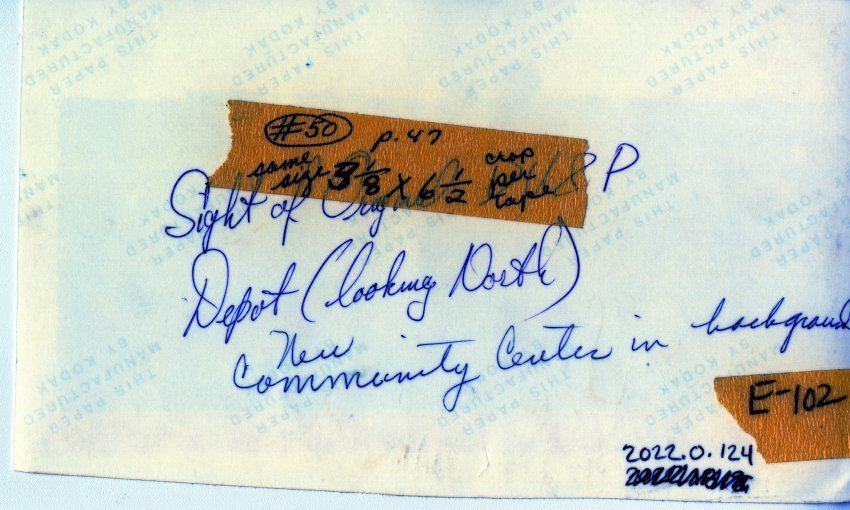 THIS PAPER
MANUFACTURED
BY KODAK
#50 p. 47
same size 3 1/8 x 6 1/2 crop per tape
Sight of & P
Depot (looking North)
New
Community Center in background
E-102
2022.0.124